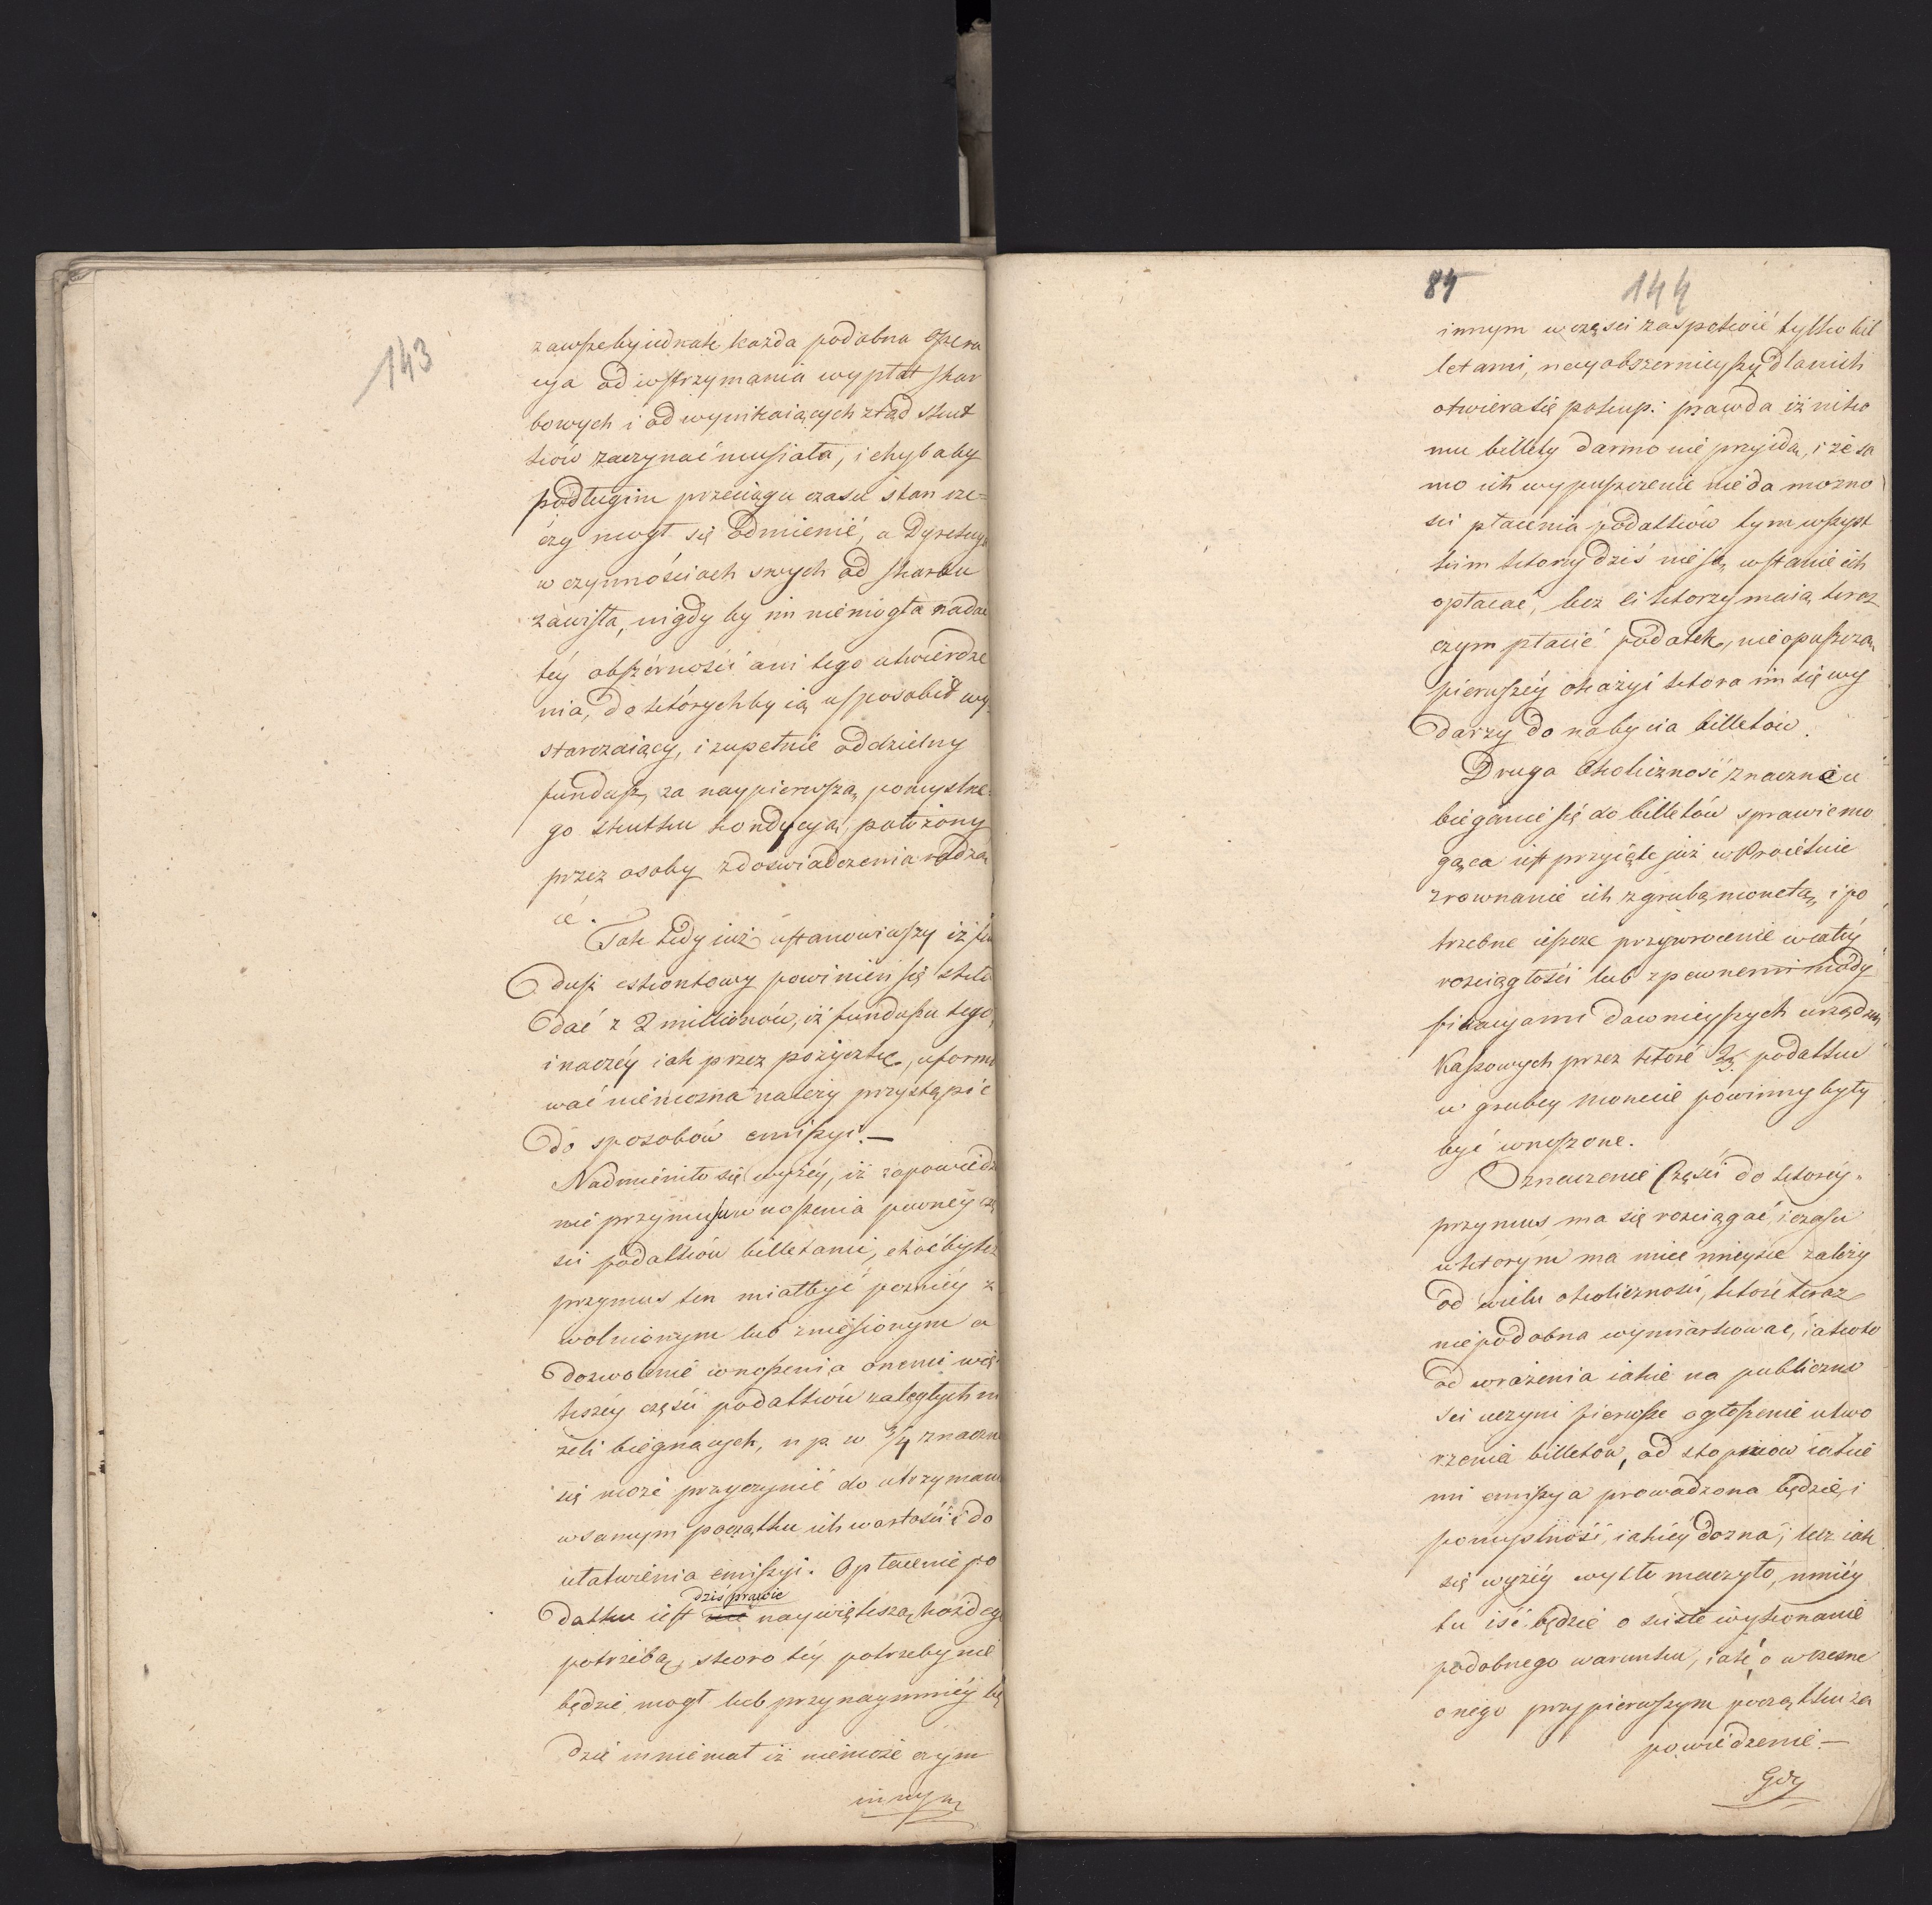 143
zawszeby iednak każda podobna Opera
cya od wstrzymania wypłat skar
bowych i od wynikaiących ztąd skut
ków zaczynać musiała, i chybaby
podługim przeciągu czasu stan rze=
czy mogł się odmienić, a Dyrekcya
w czynnościach swych od skarbu
zawisła, nigdy by im niemogła nadać
téy obszérności ani tego utwierdze
nia, do których by ią usposobił wy
starczaiący, i zupełnie oddzielny
fundusz, za naypierwszą pomyślne=
go skutku kondycyą, położony
przez osoby z doświadczenia radzą
ce.
Tak tedy iuż ustanowiwszy iż fun
dusz eskontowy powinien się skła
dać z 2 millionów, iż funduszu tego,
inaczéy iak przez pożyczkę, uformo
wać niemożna należy przystąpić
do sposobów emissyi. —
Nadmieniło się wyżéy, iż zapowiedze
nie przymusu wnoszenia pewnéy czę
ści podatków billetami, choćby też
przymus ten miał być poźniéy z
wolnionym lub zniesionym a
dozwolenie wnoszenia onemi wię
kszéy części podatków zaległych ni
żeli biegnących, np. w 3/4 znacznie
się może przyczynić do utrzymania
w samym początku ich wartości i do
ułatwienia emissyi. Opłacenie po
dziś prawie
datku iest naywiększą każdego
potrzebą, skoro téy potrzeby nie
będzie mogł lub przynaymniéy bę
dzie mniemał iż niemoże czym
innym
84
144
innym w części zaspokoić tylko bil
letami, nayobszernieyszy dla nich
otwiera się pokup: prawda iż niko
mu billety darmo nie przyidą, i że sa
mo ich wypuszczenie nie da możno
ści płacenia podatków tym wszyst
kim którzy dziś nie są w stanie ich
opłacać, lecz ci którzy maią teraz
czym płacić podatek, nie opuszczą
pierwszéy okazyi która im się wy
darzy do nabycia billetów.
Druga Okoliczność znacznie u
bieganie się do billetów sprawić mo
gąca iest przyięte już w Proiekcie
zrownanie ich z grubą monetą, i po
trzebne ieszcze przywrocenie w całéy
rozciągłości lub z pewnemi mody
fikacyami dawnieyszych urządzeń
Kassowych przez które 2/3 podatku
w grubey monecie powinny były
być wnoszone.
Oznaczenie Części do któréy
przymus ma się rozciągać, i czasu
w którym ma mieć mieysce zależy
od wielu okoliczności, które teraz
niepodobna wymiarkować, iako to
od wrażenia iakie na publiczno
ści uczyni pierwsze ogłoszenie utwo
rzenia billetów, od stopniow iakie
mi emissya prowadzona będzie, i
pomyślności, iakiéy dozna, lecz iak
się wyżéy wytłomaczyło, mniéy
tu iść będzie o ścisłe wykonanie
podobnego warunku, iak o wczesne
onego przy pierwszym początku za
powiedzenie. —
Gdy